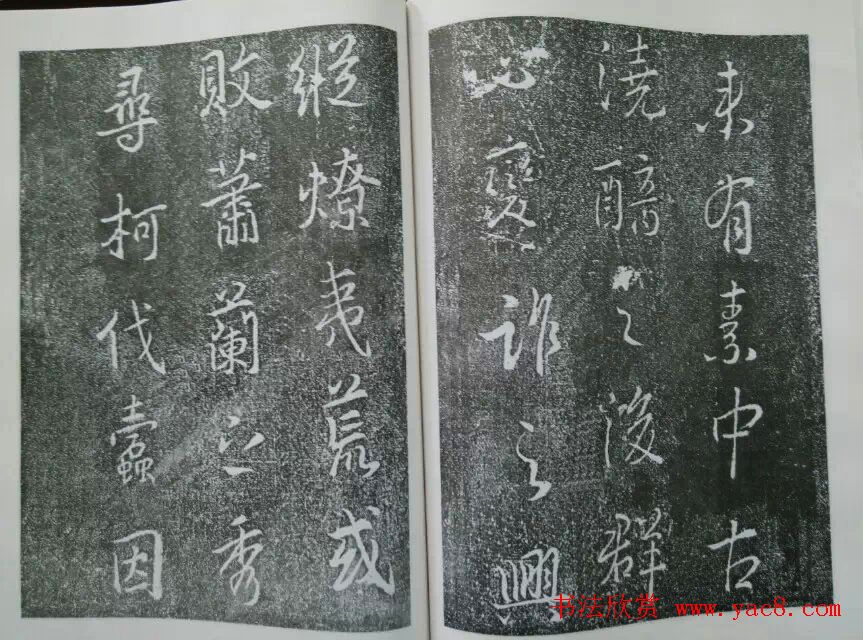 未有素中古
澆醨之後群
心變詐之興
縱燎夷荒或
敗蕭蘭之秀
尋柯伐蠹因
书法欣赏 www.yac8.com